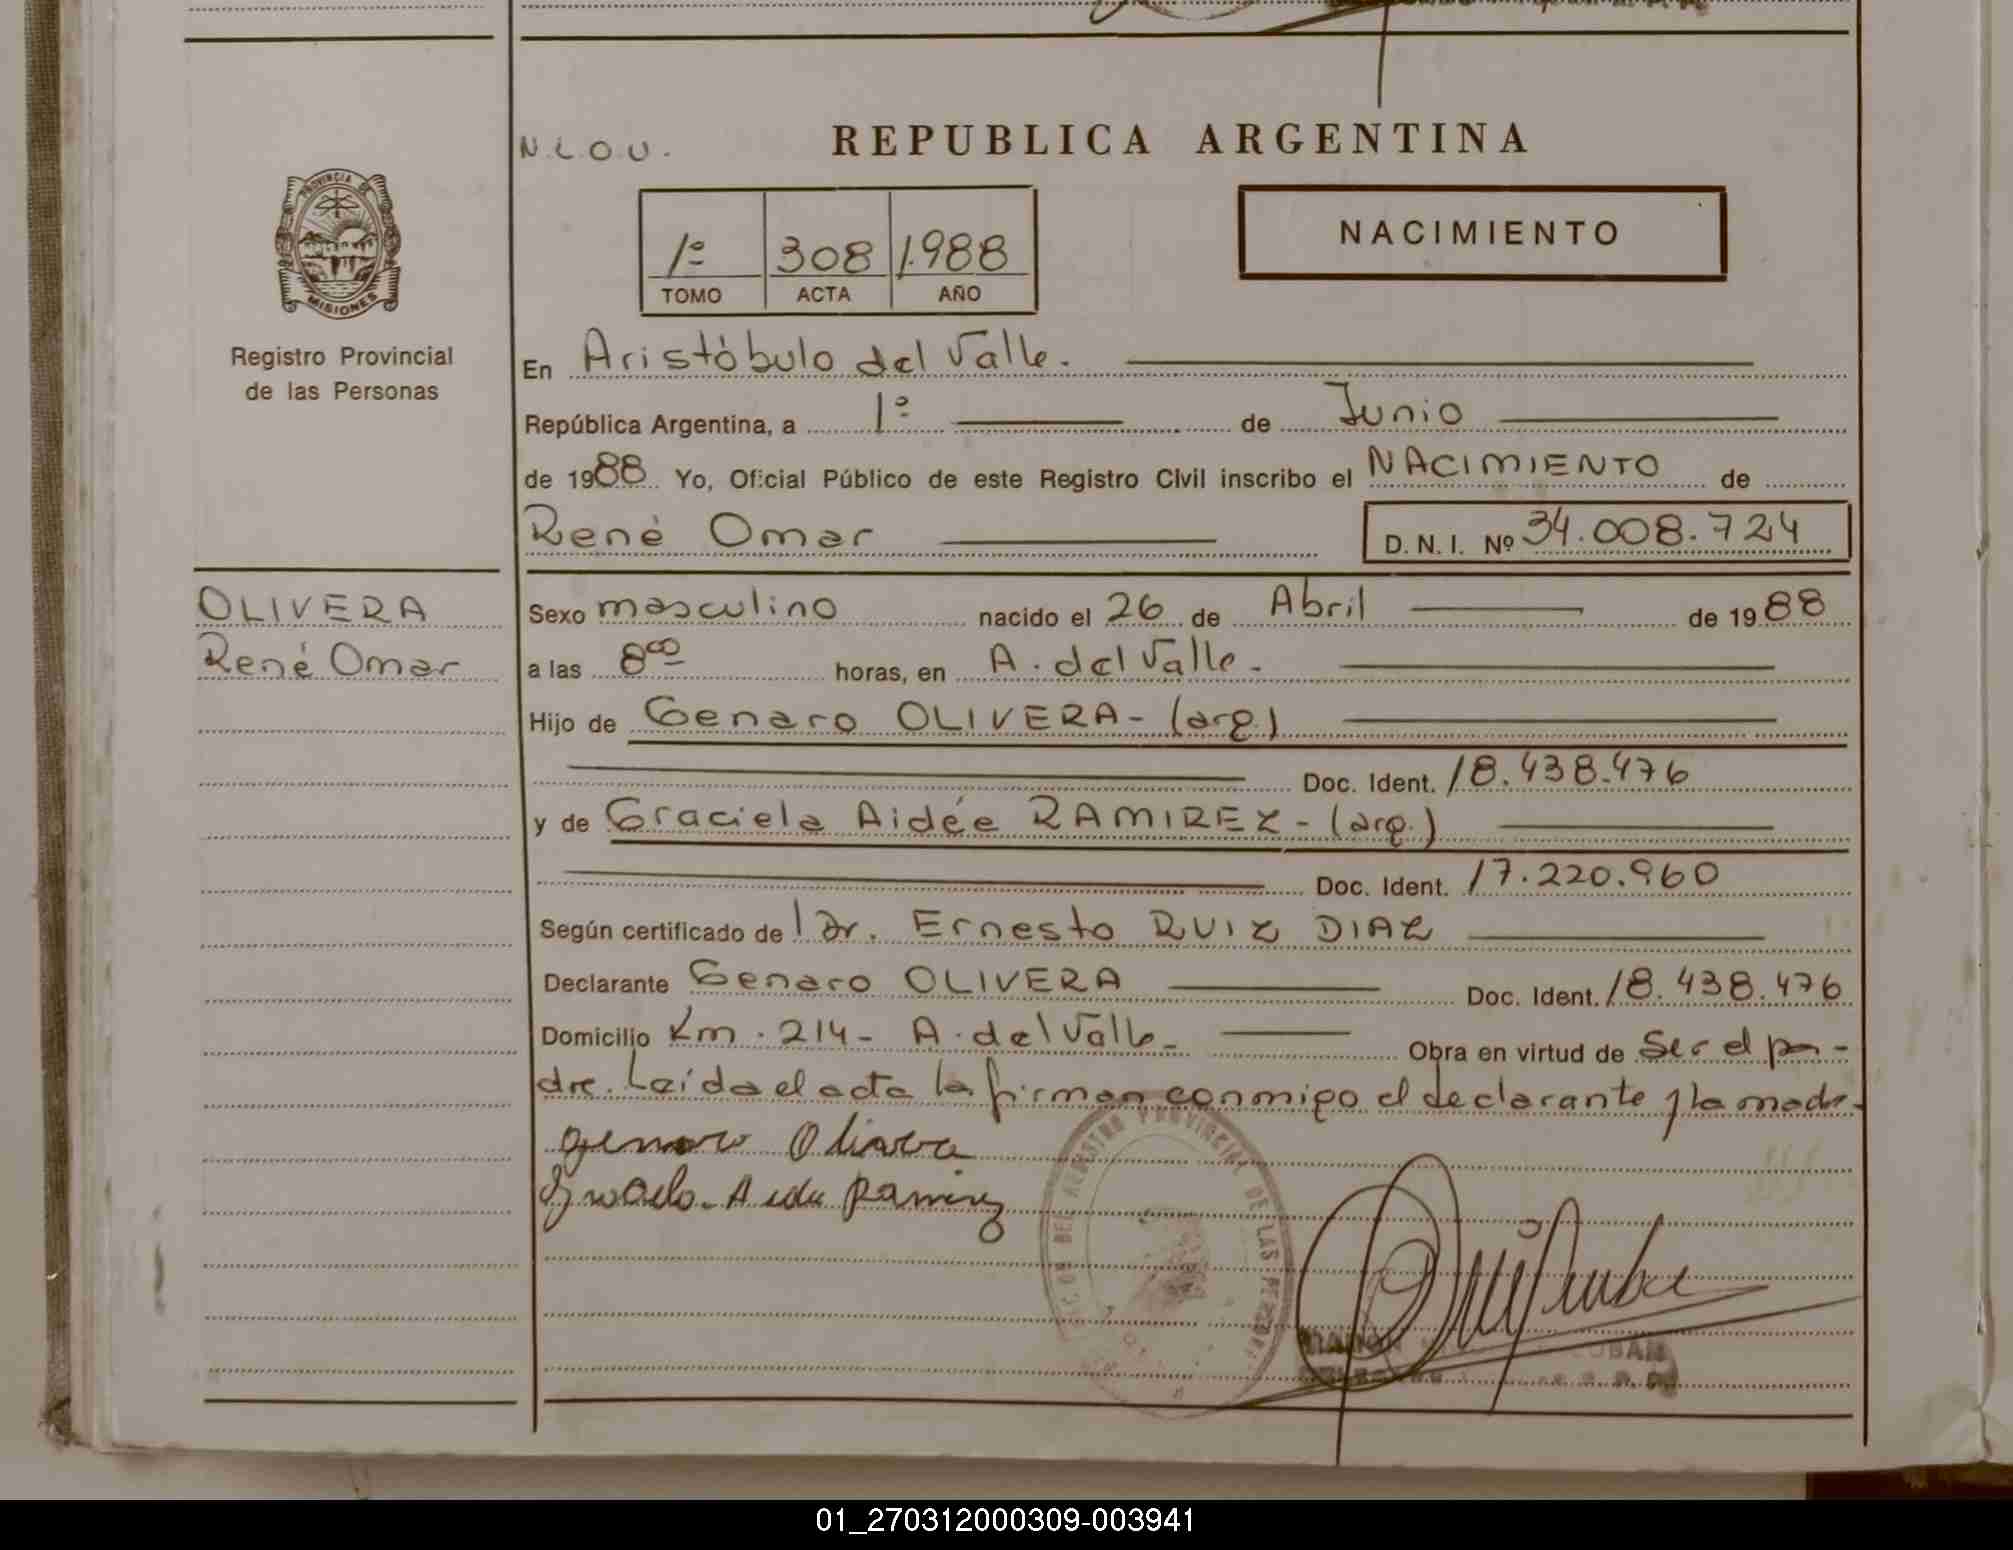 N.L.O.U.
REPUBLICA ARGENTINA
PROVINCIA DE
MISIONES
Registro Provincial
de las Personas
1º 308 1.988
TOMO ACTA AÑO
NACIMIENTO
En Aristóbulo del Valle.
República Argentina, a 1º de Junio
de 1988 Yo, Oficial Público de este Registro Civil inscribo el NACIMIENTO de
René Omar D. N. I. Nº 34.008.724
OLIVERA
René Omar
Sexo masculino nacido el 26 de Abril de 1988
a las 8 00 horas, en A. del Valle.
Hijo de Genaro OLIVERA - (arg.)
Doc. Ident. 18.438.476
y de Graciela Aidée RAMIREZ - (arg.)
Doc. Ident. 17.220.960
Según certificado de l Dr. Ernesto RUIZ DIAZ
Declarante Genaro OLIVERA Doc. Ident. 18.438.476
Domicilio Km. 214 - A. del Valle - Obra en virtud de ser el pa-
dre. Leída el acta la firman conmigo el declarante y la madre.
Genaro Olivera
Graciela Aidee Ramirez
REGISTRO PROVINCIAL DE LAS PERSONAS
01_270312000309-003941